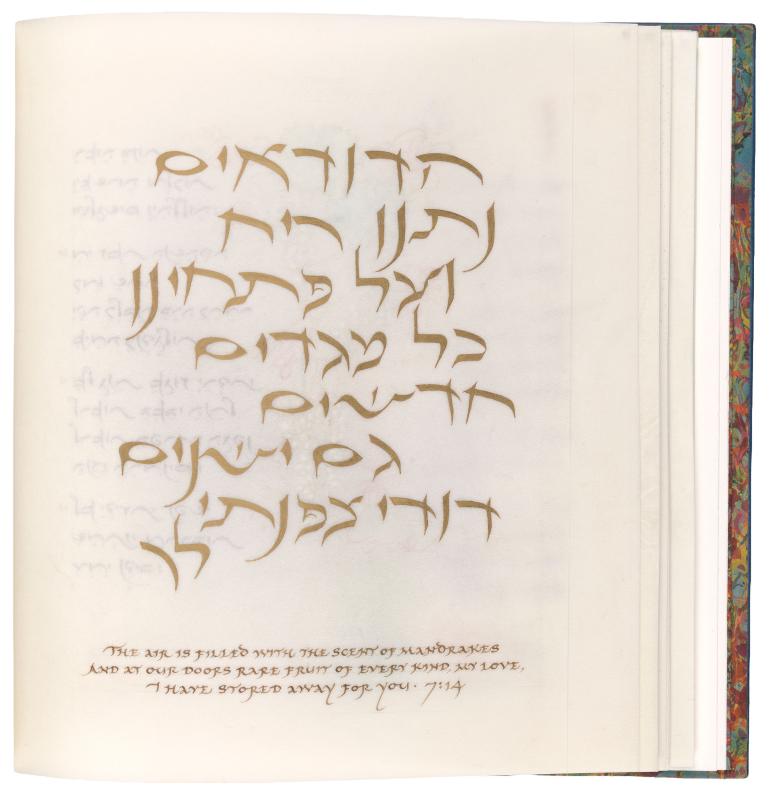 הדודאים
נתנו ריח
ועל פתחינו
כל מגדים
חדשים
גם ישנים
דודי צפנתי
לך
THE AIR IS FILLED WITH THE SCENT OF MANDRAKES
AND AT OUR DOORS RARE FRUIT OF EVERY KIND, MY LOVE,
I HAVE STORED AWAY FOR YOU. 7:14